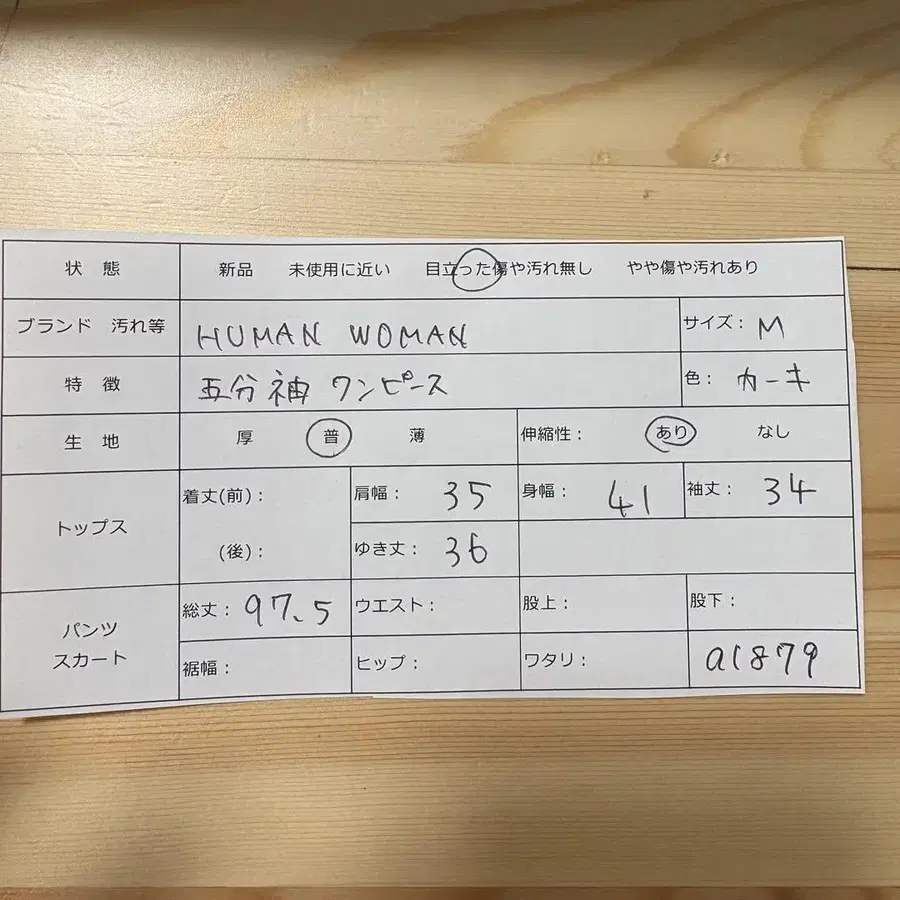 状 態 新品 未使用に近い 目立った傷や汚れ無し やや傷や汚れあり
ブランド 汚れ等 HUMAN WOMAN サイズ: M
特 徴 五分袖 ワンピース 色: カーキ
生 地 厚 普 薄 伸縮性: あり なし
トップス 着丈(前): 肩幅: 35 身幅: 41 袖丈: 34
(後): ゆき丈: 36
パンツ スカート 総丈: 97.5 ウエスト: 股上: 股下:
裾幅: ヒップ: ワタリ: a1879